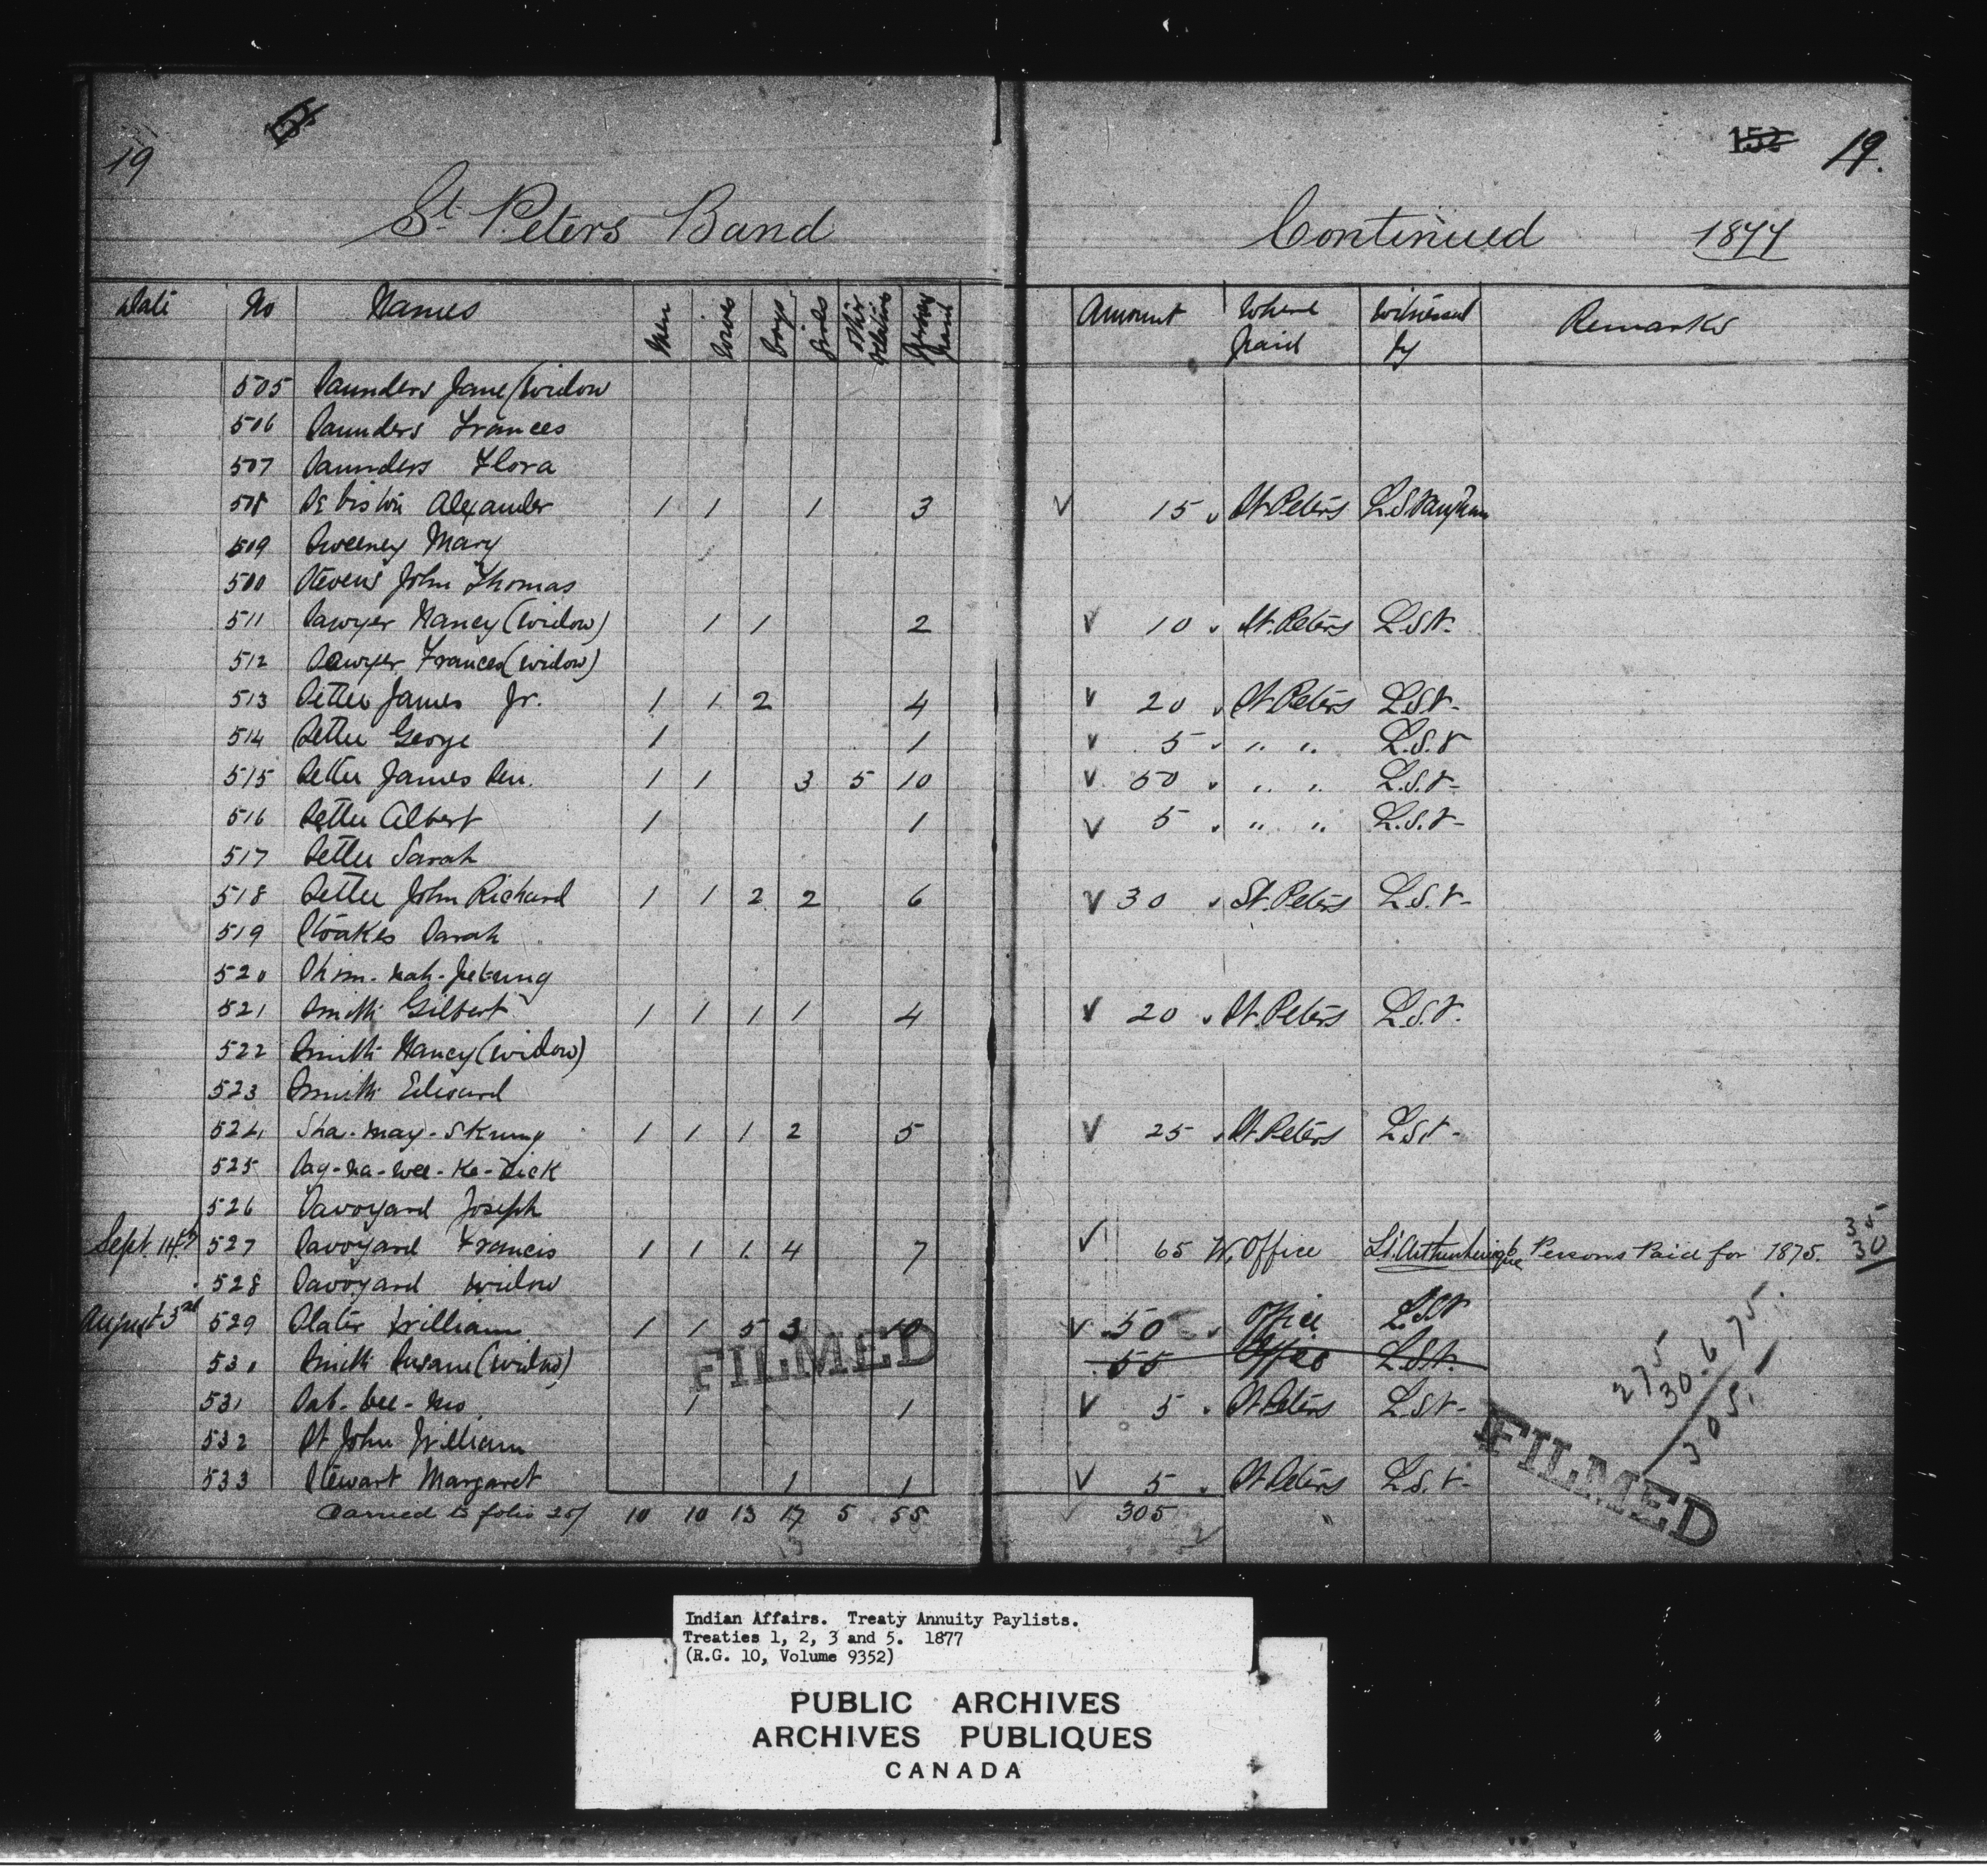 19
152 19.
St. Peters Band Continued 1877
Date No Names Men Wives Boys Girls Other Relatives Persons paid Amount Where paid Witnessed by Remarks
505 Saunders Jane (Widow
506 Saunders Frances
507 Saunders Flora
508 Alexander 1 1 1 3 15 St Peters L.S. Vaughan
509 Sweeney Mary
500 Stevens John Thomas
511 Sawyer Nancy (Widow) 1 1 2 10 St. Peters L.S.V.
512 Sawyer Frances (widow)
513 Settee James Jr. 1 1 2 4 20 St Peters L.S.V.
514 Settee George 1 1 5 " " L.S.V
515 Settee James Sen. 1 1 3 5 10 50 " " L.S.V.
516 Settee Albert 1 1 5 " " L.S.V.
517 Settee Sarah
518 Settee John Richard 1 1 2 2 6 30 St. Peters L.S.V.
519 Stoakes Sarah
520
521 Smith Gilbert 1 1 1 1 4 20 St. Peters L.S.V.
522 Smith Nancy (widow)
523 Smith Edward
524 Sha-may-skung 1 1 1 2 5 25 St Peters L.S.V.
525 Say-na-wee-ke-zick
526 Savoyard Joseph
Sept. 14th 527 Savoyard Francis 1 1 1 4 7 65 W. Office 6 Persons Paid for 1875. 35
30
528 Savoyard widow
August 3rd 529 Slater William 1 1 5 3 10 50 Office L.S.V
530 Smith Susan (widow) 55 Office L.S.V.
531 1 1 5 St Peters L.S.V.
532 St John William
533 Stewart Margaret 1 1 5 St Peters L.S.V.
Carried to folio 20 10 10 13 17 5 55 305
275
30. 6 75.
305.
FILMED
FILMED
Indian Affairs. Treaty Annuity Paylists.
Treaties 1, 2, 3 and 5. 1877
(R.G. 10, Volume 9352)
PUBLIC ARCHIVES
ARCHIVES PUBLIQUES
CANADA